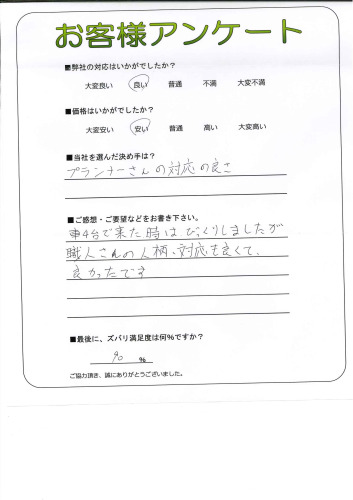 お客様アンケート
■弊社の対応はいかがでしたか?
大変良い 良い 普通 不満 大変不満
■価格はいかがでしたか?
大変安い 安い 普通 高い 大変高い
■当社を選んだ決め手は?
プランナーさんの対応の良さ
■ご感想・ご要望などをお書き下さい。
車4台で来た時はびっくりしましたが
職人さんの人柄、対応も良くて、
良かったです
■最後に、ズバリ満足度は何%ですか?
90 %
ご協力頂き、誠にありがとうございました。